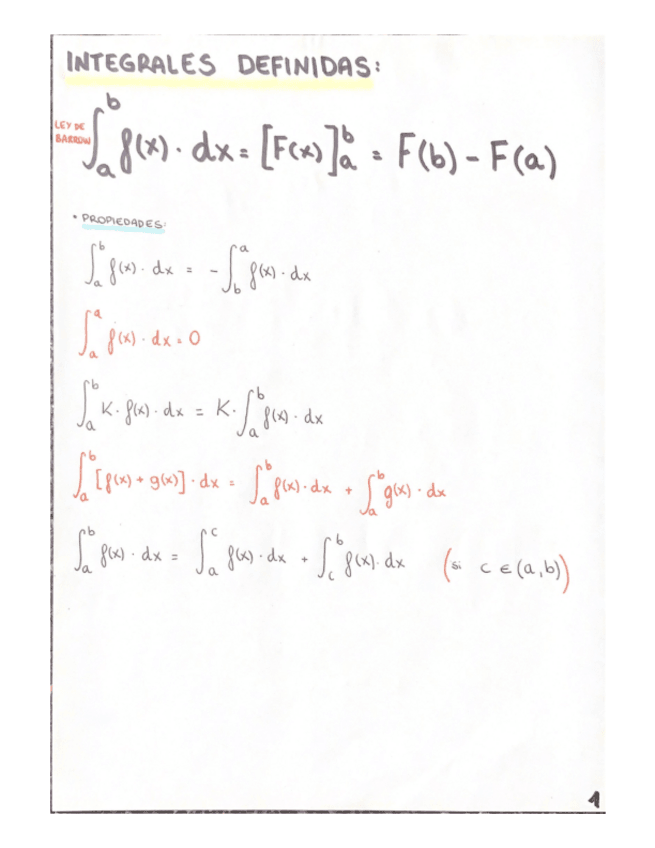 INTEGRALES DEFINIDAS:
LEY DE BARROW ∫_a^b f(x) · dx = [F(x)]_a^b = F(b) - F(a)
• PROPIEDADES:
∫_a^b f(x) · dx = - ∫_b^a f(x) · dx
∫_a^a f(x) · dx = 0
∫_a^b K · f(x) · dx = K · ∫_a^b f(x) · dx
∫_a^b [f(x) + g(x)] · dx = ∫_a^b f(x) · dx + ∫_a^b g(x) · dx
∫_a^b f(x) · dx = ∫_a^c f(x) · dx + ∫_c^b f(x) · dx (si c ∈ (a,b))
1